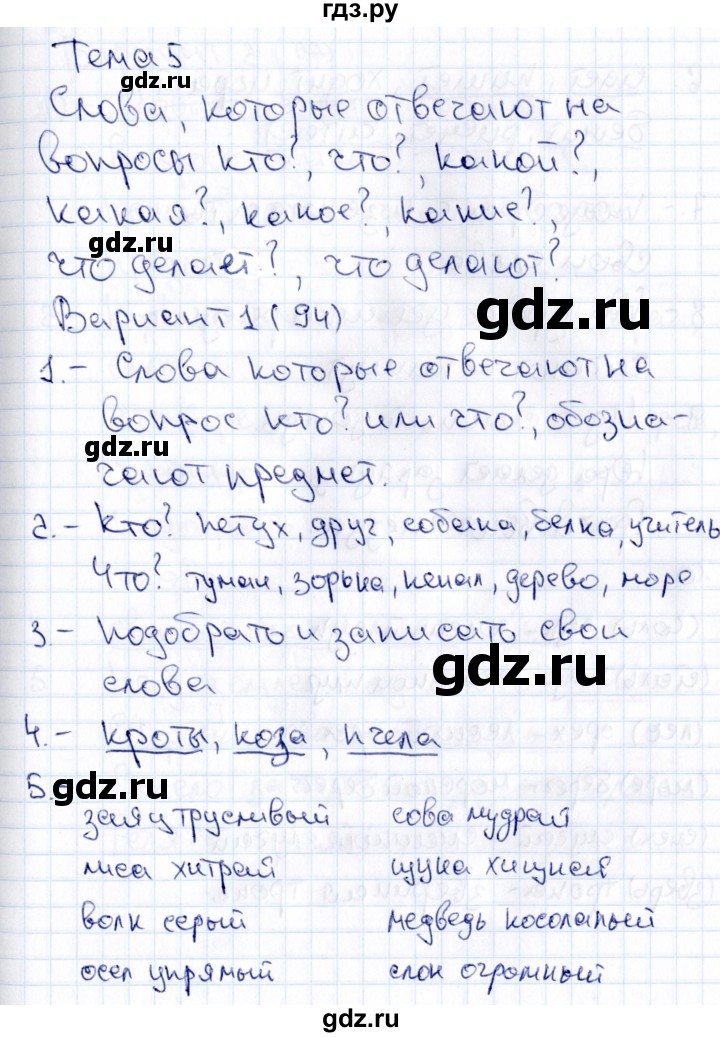 гдз.ру
Тема 5
gdz.ru
Слова, которые отвечают на
вопросы кто?, что?, какой?,
какая?, какое?, какие?,
gdz.ru
что делает?, что делают?
gdz.ru
Вариант 1 (94)
1.- Слова которые отвечают на
вопрос кто? или что?, обозна-
gdz.ru
чают предмет.
2.- Кто? петух, друг, собака, белка, учитель
Что? туман, зорька, пенал, дерево, море
3.- подобрать и записать свои
gdz.ru
слова
4.- кроты, коза, пчела
gdz.ru
5.
заяц трусливый сова мудрая
лиса хитрая щука хищная
волк серый медведь косолапый
осел упрямый слон огромный
gdz.ru